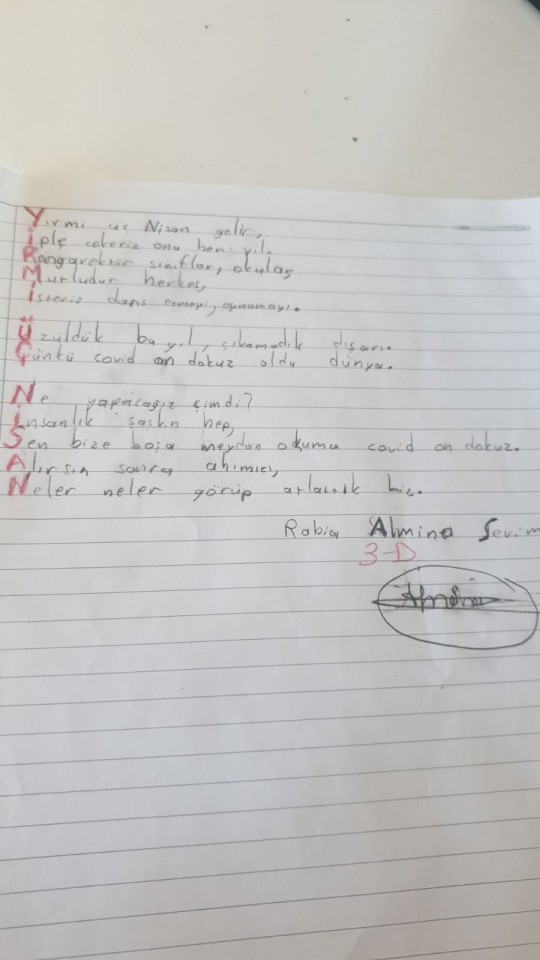 Yirmi üç Nisan gelir,
İple çekeriz onu her yıl.
Rengarektir sınıflar, okulas,
Mutludur herkes,
İsteriz dans etmeyi, oynamayı.
Üzüldük bu yıl, çıkamadık dışarı.
Çünkü covid on dokuz oldu dünya.
Ne yapacağız şimdi?
İnsanlık şaşkın hep,
Sen bize boşa meydan okuma covid on dokuz.
Alırsın sonra ahımızı,
Neler neler görüp atlattık biz.
Rabia Almina Sevim
3-D